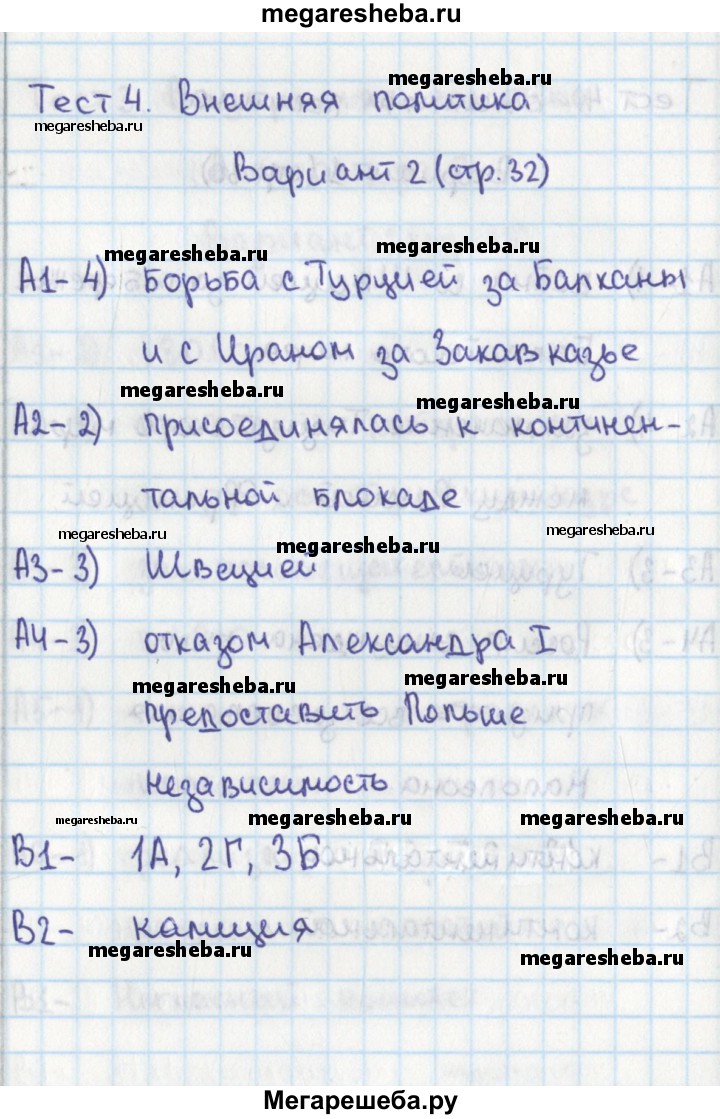 megaresheba.ru
megaresheba.ru
Тест 4. Внешняя политика
megaresheba.ru
Вариант 2 (стр. 32)
megaresheba.ru megaresheba.ru
А1-4) Борьба с Турцией за Балканы
и с Ираном за Закавказье
megaresheba.ru megaresheba.ru
А2-2) присоединялась к континен-
тальной блокаде
megaresheba.ru megaresheba.ru megaresheba.ru
А3-3) Швецией
А4-3) отказом Александра I
megaresheba.ru megaresheba.ru
предоставить Польше
независимость
megaresheba.ru megaresheba.ru megaresheba.ru
В1- 1А, 2Г, 3Б
В2- калиция
megaresheba.ru megaresheba.ru
Мегарешеба.ру